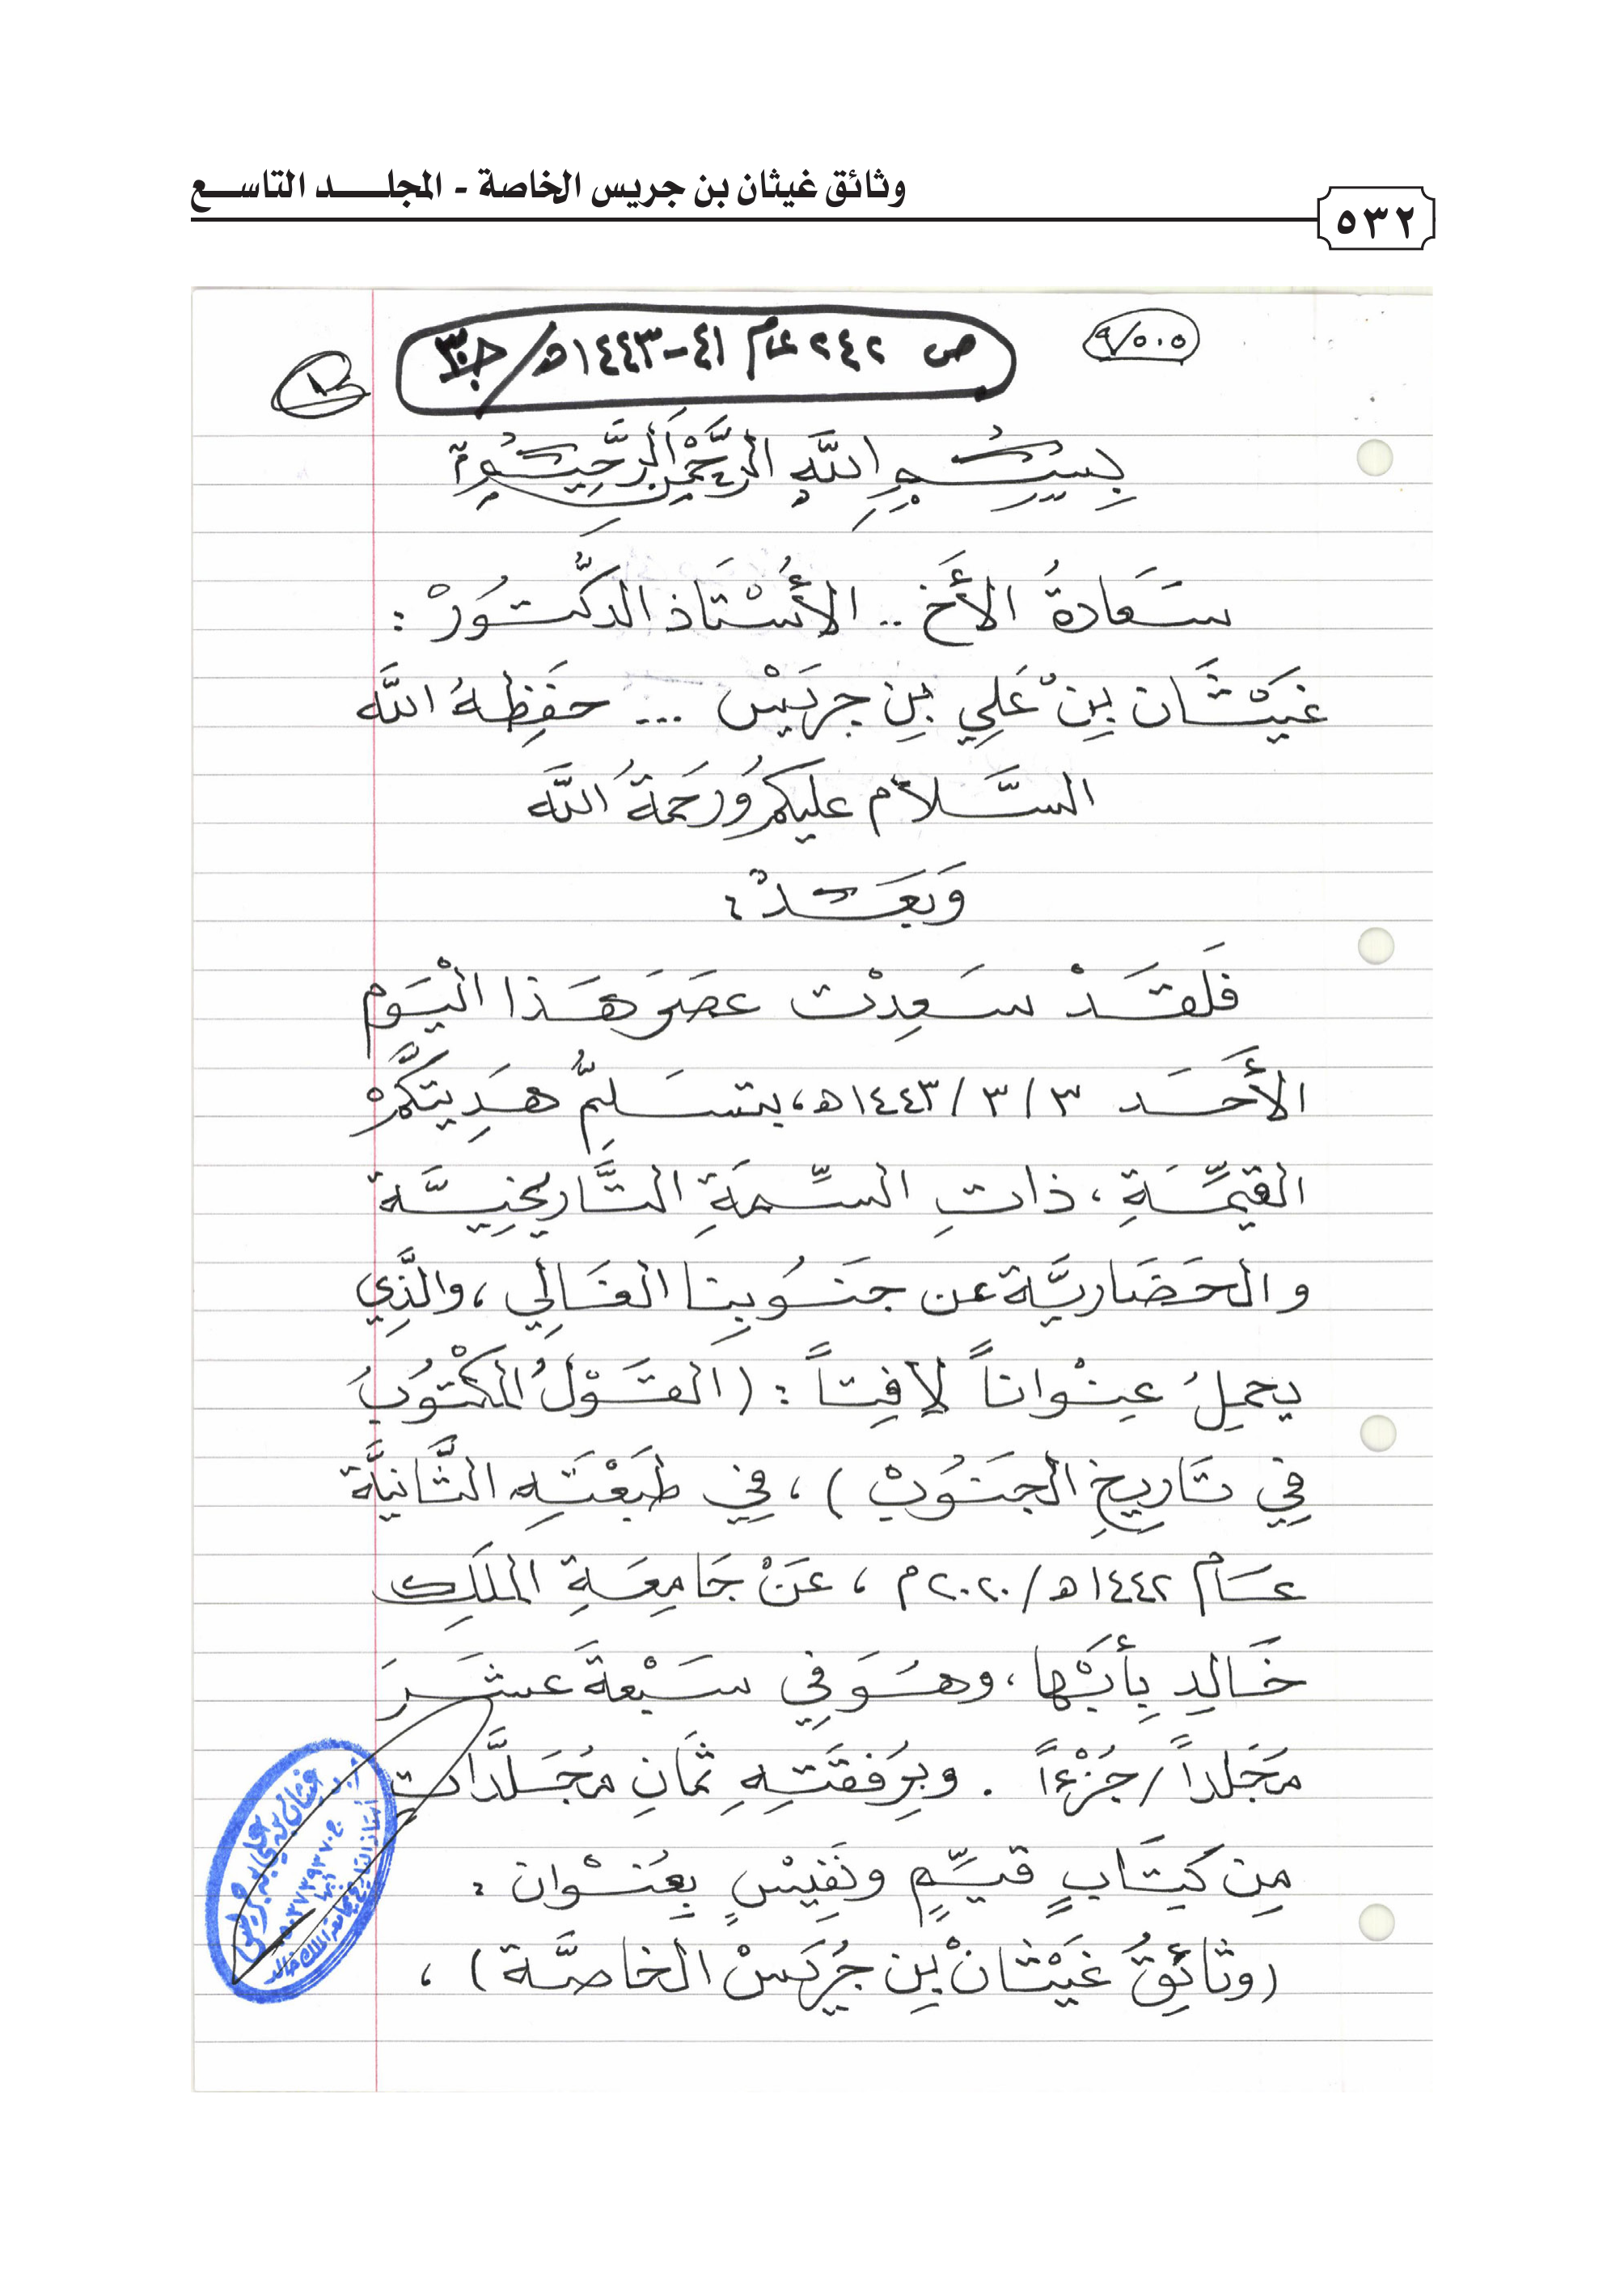 وثائق غيثان بن جريس الخاصة - المجلد التاسع
٥٣٢
٩/٥٠٥
ص ٢٤٢ عام ٤١-١٤٤٣هـ/ج٣
بِسْمِ اللَّهِ الرَّحْمَنِ الرَّحِيْمِ
سَعَادةُ الأَخ .. الأُسْتَاذ الدكُّتُورْ :
غَيْثَان بِنْ عَلِي بِن جريَسْ ... حفَظِهُ اللَّه
السَّلام عليكم وَرَحَمةُ اللَّه
وَبَعَدْ :
فَلَقَدْ سَعِدْت عصَر هَذا الْيَوم
الأَحَد ٣ / ٣ / ١٤٤٣هـ، بتسَلمُِّ هَدِيتكَّمْ
القيِّمَةِ ، ذاتِ السِّمَةِ التَّاريخيَّة
والحَضَاريَّة عن جنَوُبِنا الغَالِي ، والَّذِي
يحملُِ عِنْواناً لافِتاً : (القَوْلُ المكْتوُبُ
فِي تَاريخِ الجنَوُبْ ) ، فِي طَبَعْتَهِ الثَّانيَّة
عَام ١٤٤٢هـ/٢٠٢٠م ، عَنْ جَامِعَةِ الملَكِ
خَالِد بِأَبْها ، وهُوَ فِي سَبْعةَ عشَرَ
مُجَلداً/جُزْءاً . وبِرُفقَتَهِ ثمَانِ مُجَلدَّات
مِن كِتَابٍ قيِّمٍ ونَفِيْسٍ بِعُنْوان :
(وثائِقُ غَيْثانْ بِن جُريَسْ الخاصَّة ) ،